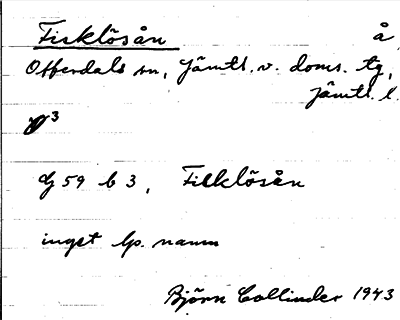 Fisklösån å
Offerdals sn, Jämtl. v. doms. tg,
Jämtl. l.
G 59 b 3, Filklösån
inget bp. namn
Björn Collinder 1943